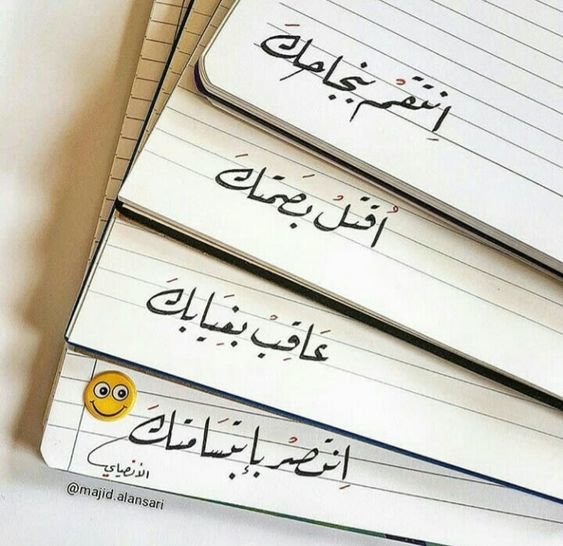 اِنتقمْ بنجاحكَ
اُقتلْ بصَمتكَ
عَاقِبْ بغيَابكَ
اِنتصرْ بإبتسَامتكَ
الأنصاري
@majid.alansari